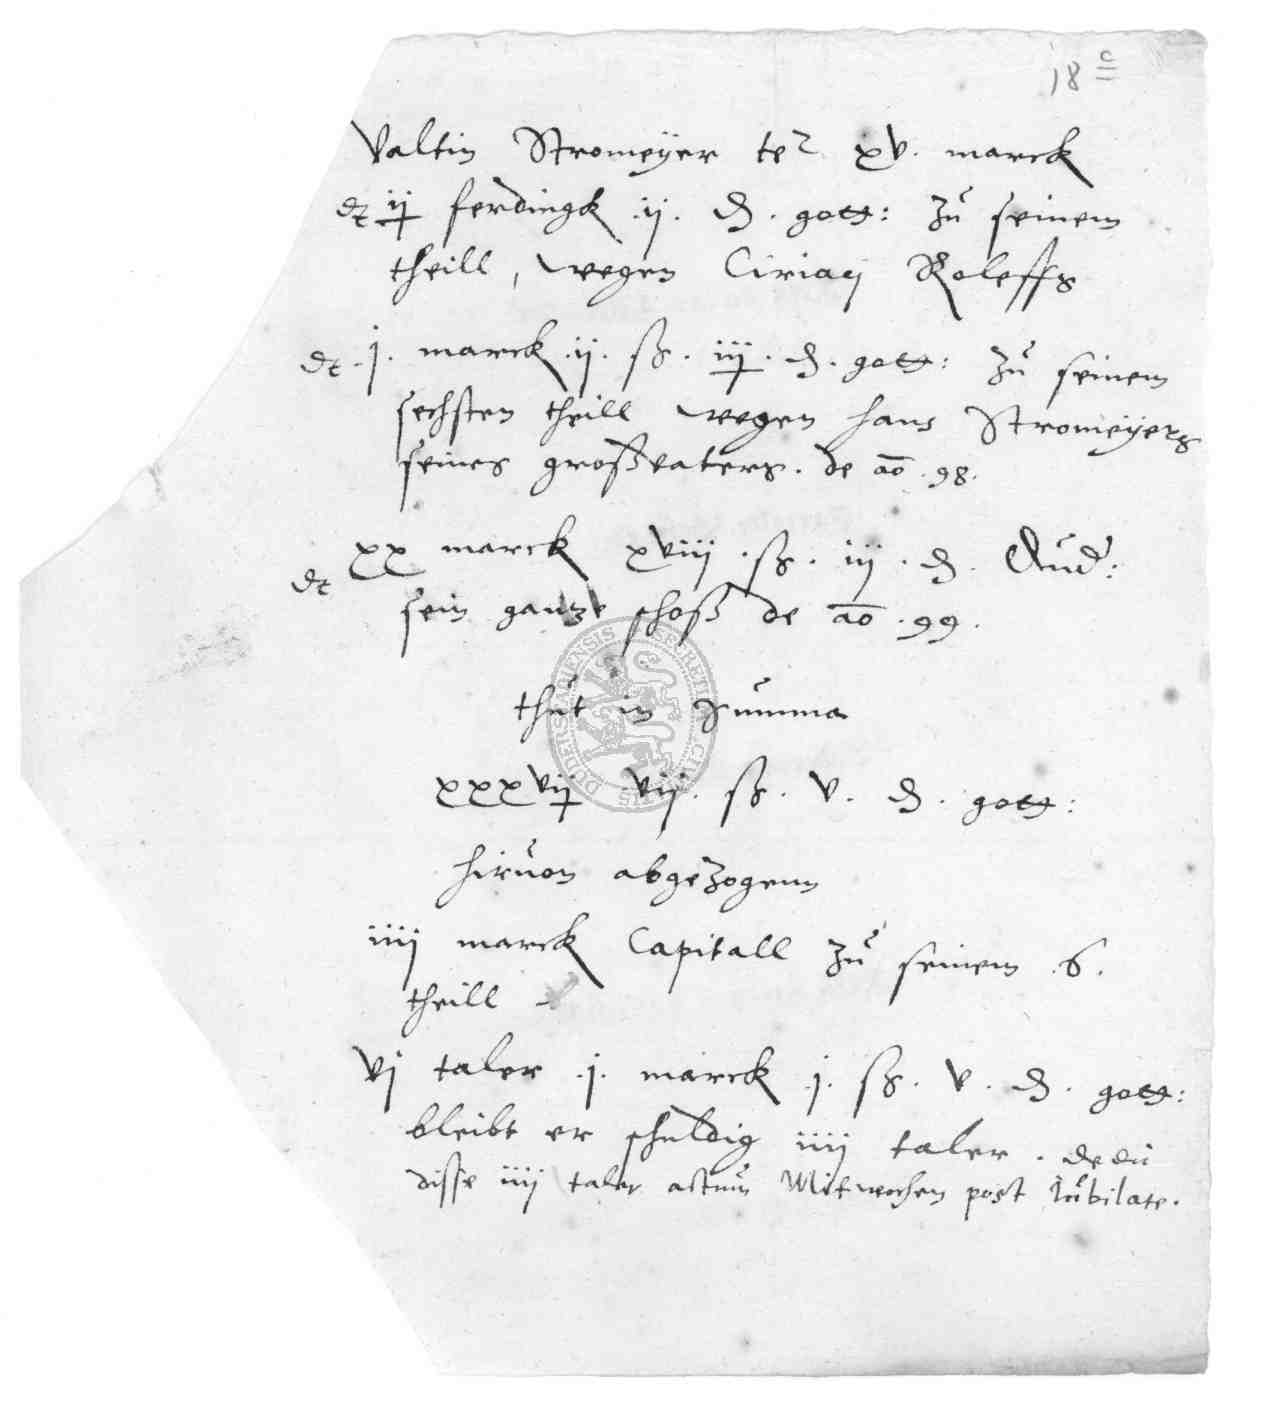 18 c
Valtin Stromeyer te² xv. marck
dt ij ferdingk .ij. d. gott: zu seinem
theill, wegen Ciriacj Roleffs
dt .j. marck .ij. ß. iij. d. gott: zu seinem
sechsten theill wegen hans Stromeyers
seines großvaters. de ao .98.
xx marck xviij .ß. iij. d. Dud:
dt
sein gantze schoß de ao .99.
thut in Summa
xxxvij vij. ß. v. d. gott:
hiruon abgezogenn
iiij marck Capitall zu seinem .6.
theill
vj taler .j. marck .j. ß. v. d. gott:
bleibt er schuldig iiij taler. dedit
disse iiij taler actum Mitwochen post Iubilate.
SECRETUM CIVITATIS DUDERSTADIENSIS